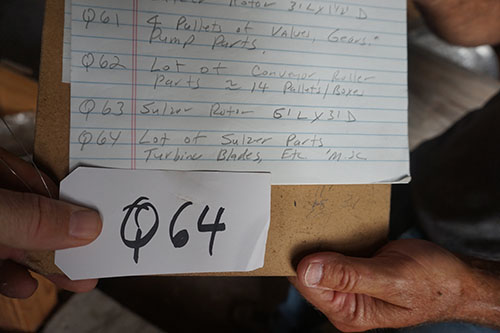 Rotor 3'L x 1½' D
Q61 4 Pullets of Values, Gears.
Pump Parts.
Q62 Lot of Conveyor Roller
Parts ≈ 14 Pallets/Boxes
Q63 Sulzer Rotor 6'L x 3'D
Q64 Lot of Sulzer Parts
Turbine Blades, Etc Mix
Q64